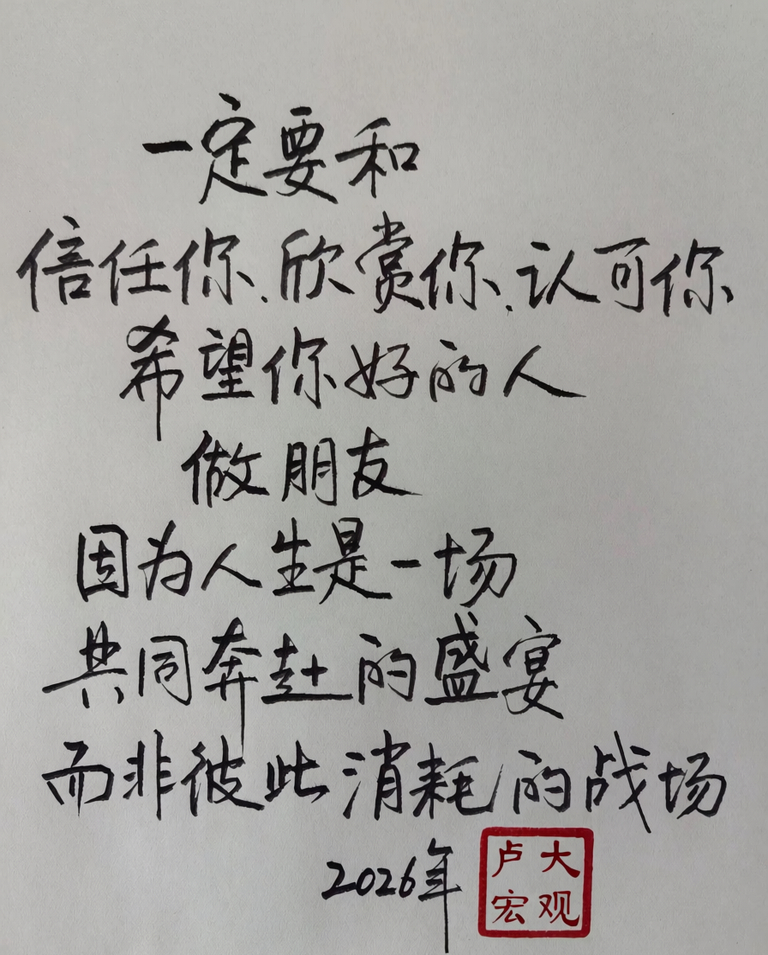 一定要和
信任你、欣赏你、认可你
希望你好的人
做朋友
因为人生是一场
共同奔赴的盛宴
而非彼此消耗的战场
2026年
大观
卢宏